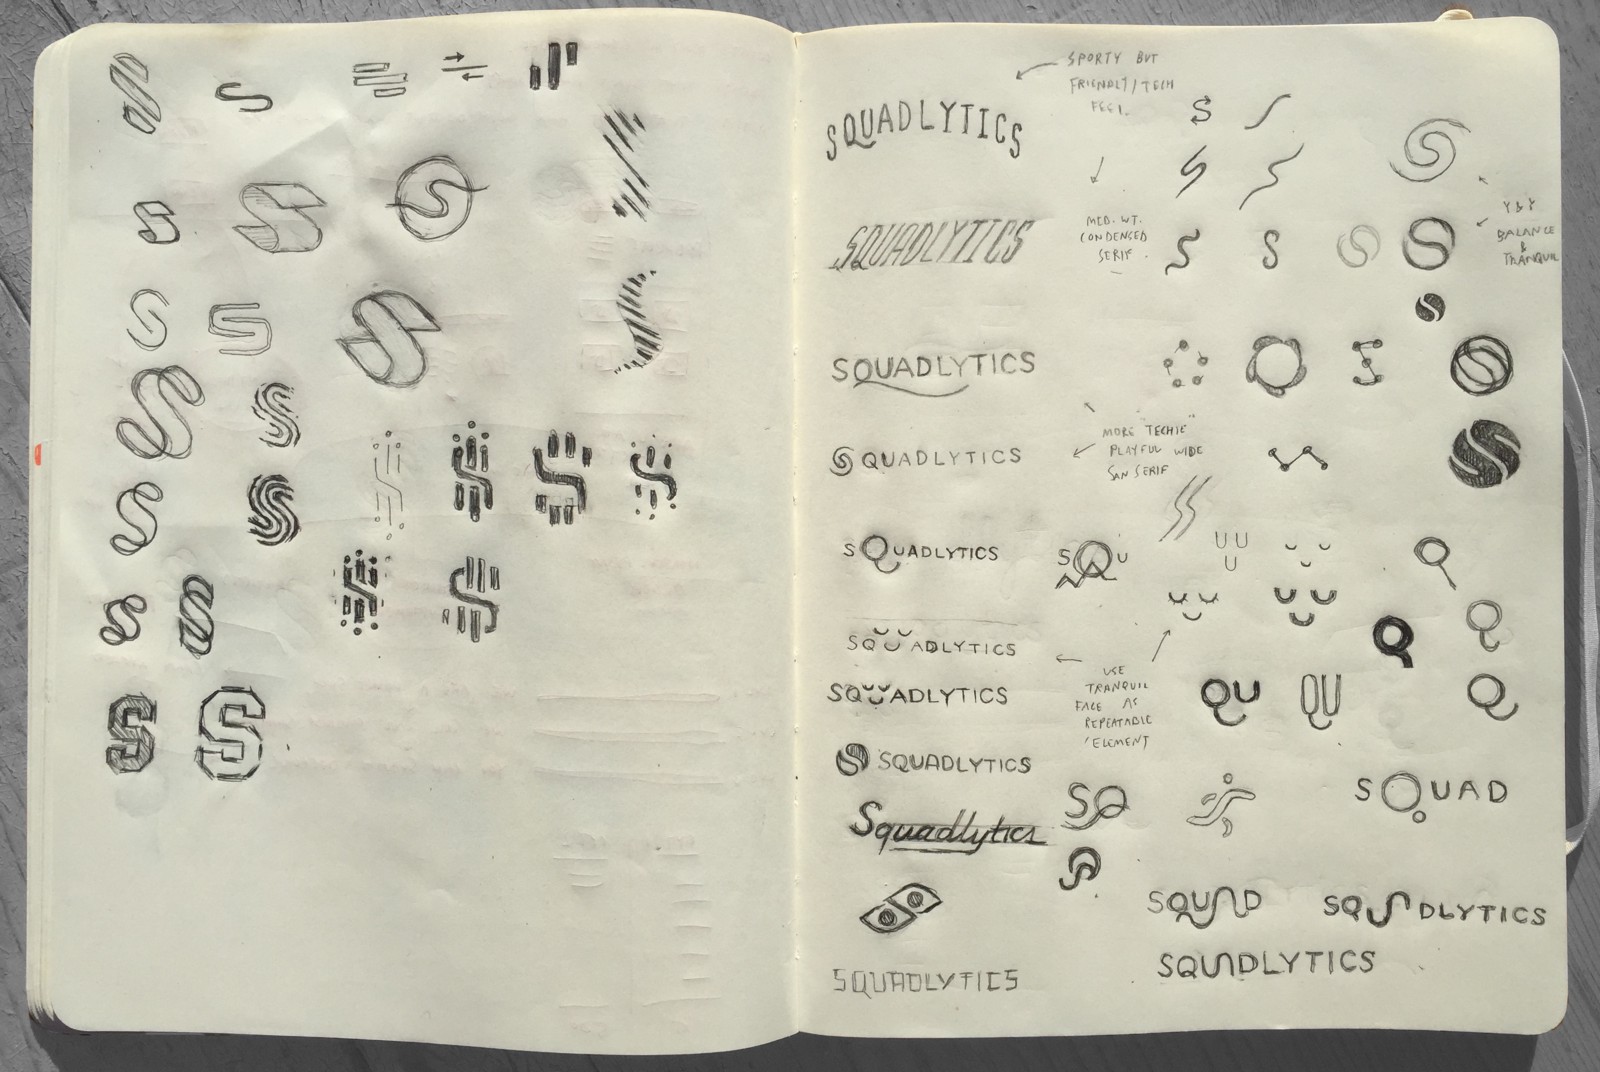 SPORTY BUT
FRIENDLY/TECH
FEEL.
SQUADLYTICS
MED. WT.
CONDENSED
SERIF
SQUADLYTICS
BALANCE
&
TRANQUIL
SQUADLYTICS
MORE "TECHIE"
PLAYFUL WIDE
SAN SERIF
SQUADLYTICS
SQUADLYTICS
SQU
SQUADLYTICS
SQUADLYTICS
USE
TRANQUIL
FACE AS
REPEATABLE
ELEMENT
QU
QU
SQUADLYTICS
Squadlytics
SQ
SQUAD
SQUAD
SQUADLYTICS
SQUADLYTICS
SQUADLYTICS